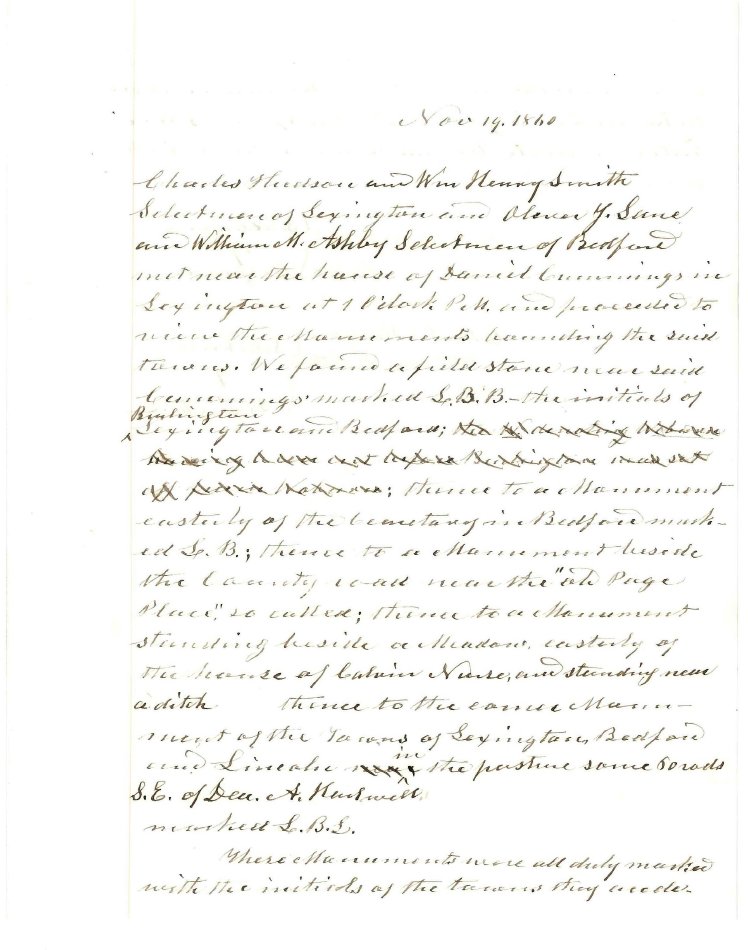 Nov 19. 1860
Charles Hudson and Wm Henry Smith
Selectmen of Lexington and Oliver J. Lane
and William A. Ashby Selectmen of Bedford
met near the house of Daniel Cummings in
Lexington at 1 O'clock P.M. and proceeded to
view the Monuments bounding the said
towns. We found a field stone near said
Cummings marked L.B.B. - the initials of
Burlington
Lexington and Bedford; the
having been before Burlington was set
off from Woburn; thence to a Monument
easterly of the Cemetary in Bedford mark-
ed L. B.; thence to a Monument beside
the County road near the "old Page
Place", so called; thence to a Monument
standing beside a Meadow, easterly of
the house of Calvin Nurse, and standing near
a ditch thence to the corner Monu-
ment of the Towns of Lexington, Bedford
in
and Lincoln near the pasture some 60 rods
S.E. of Dea. A. Hartwell
marked L.B.L.
These Monuments were all duly marked
with the initials of the towns they